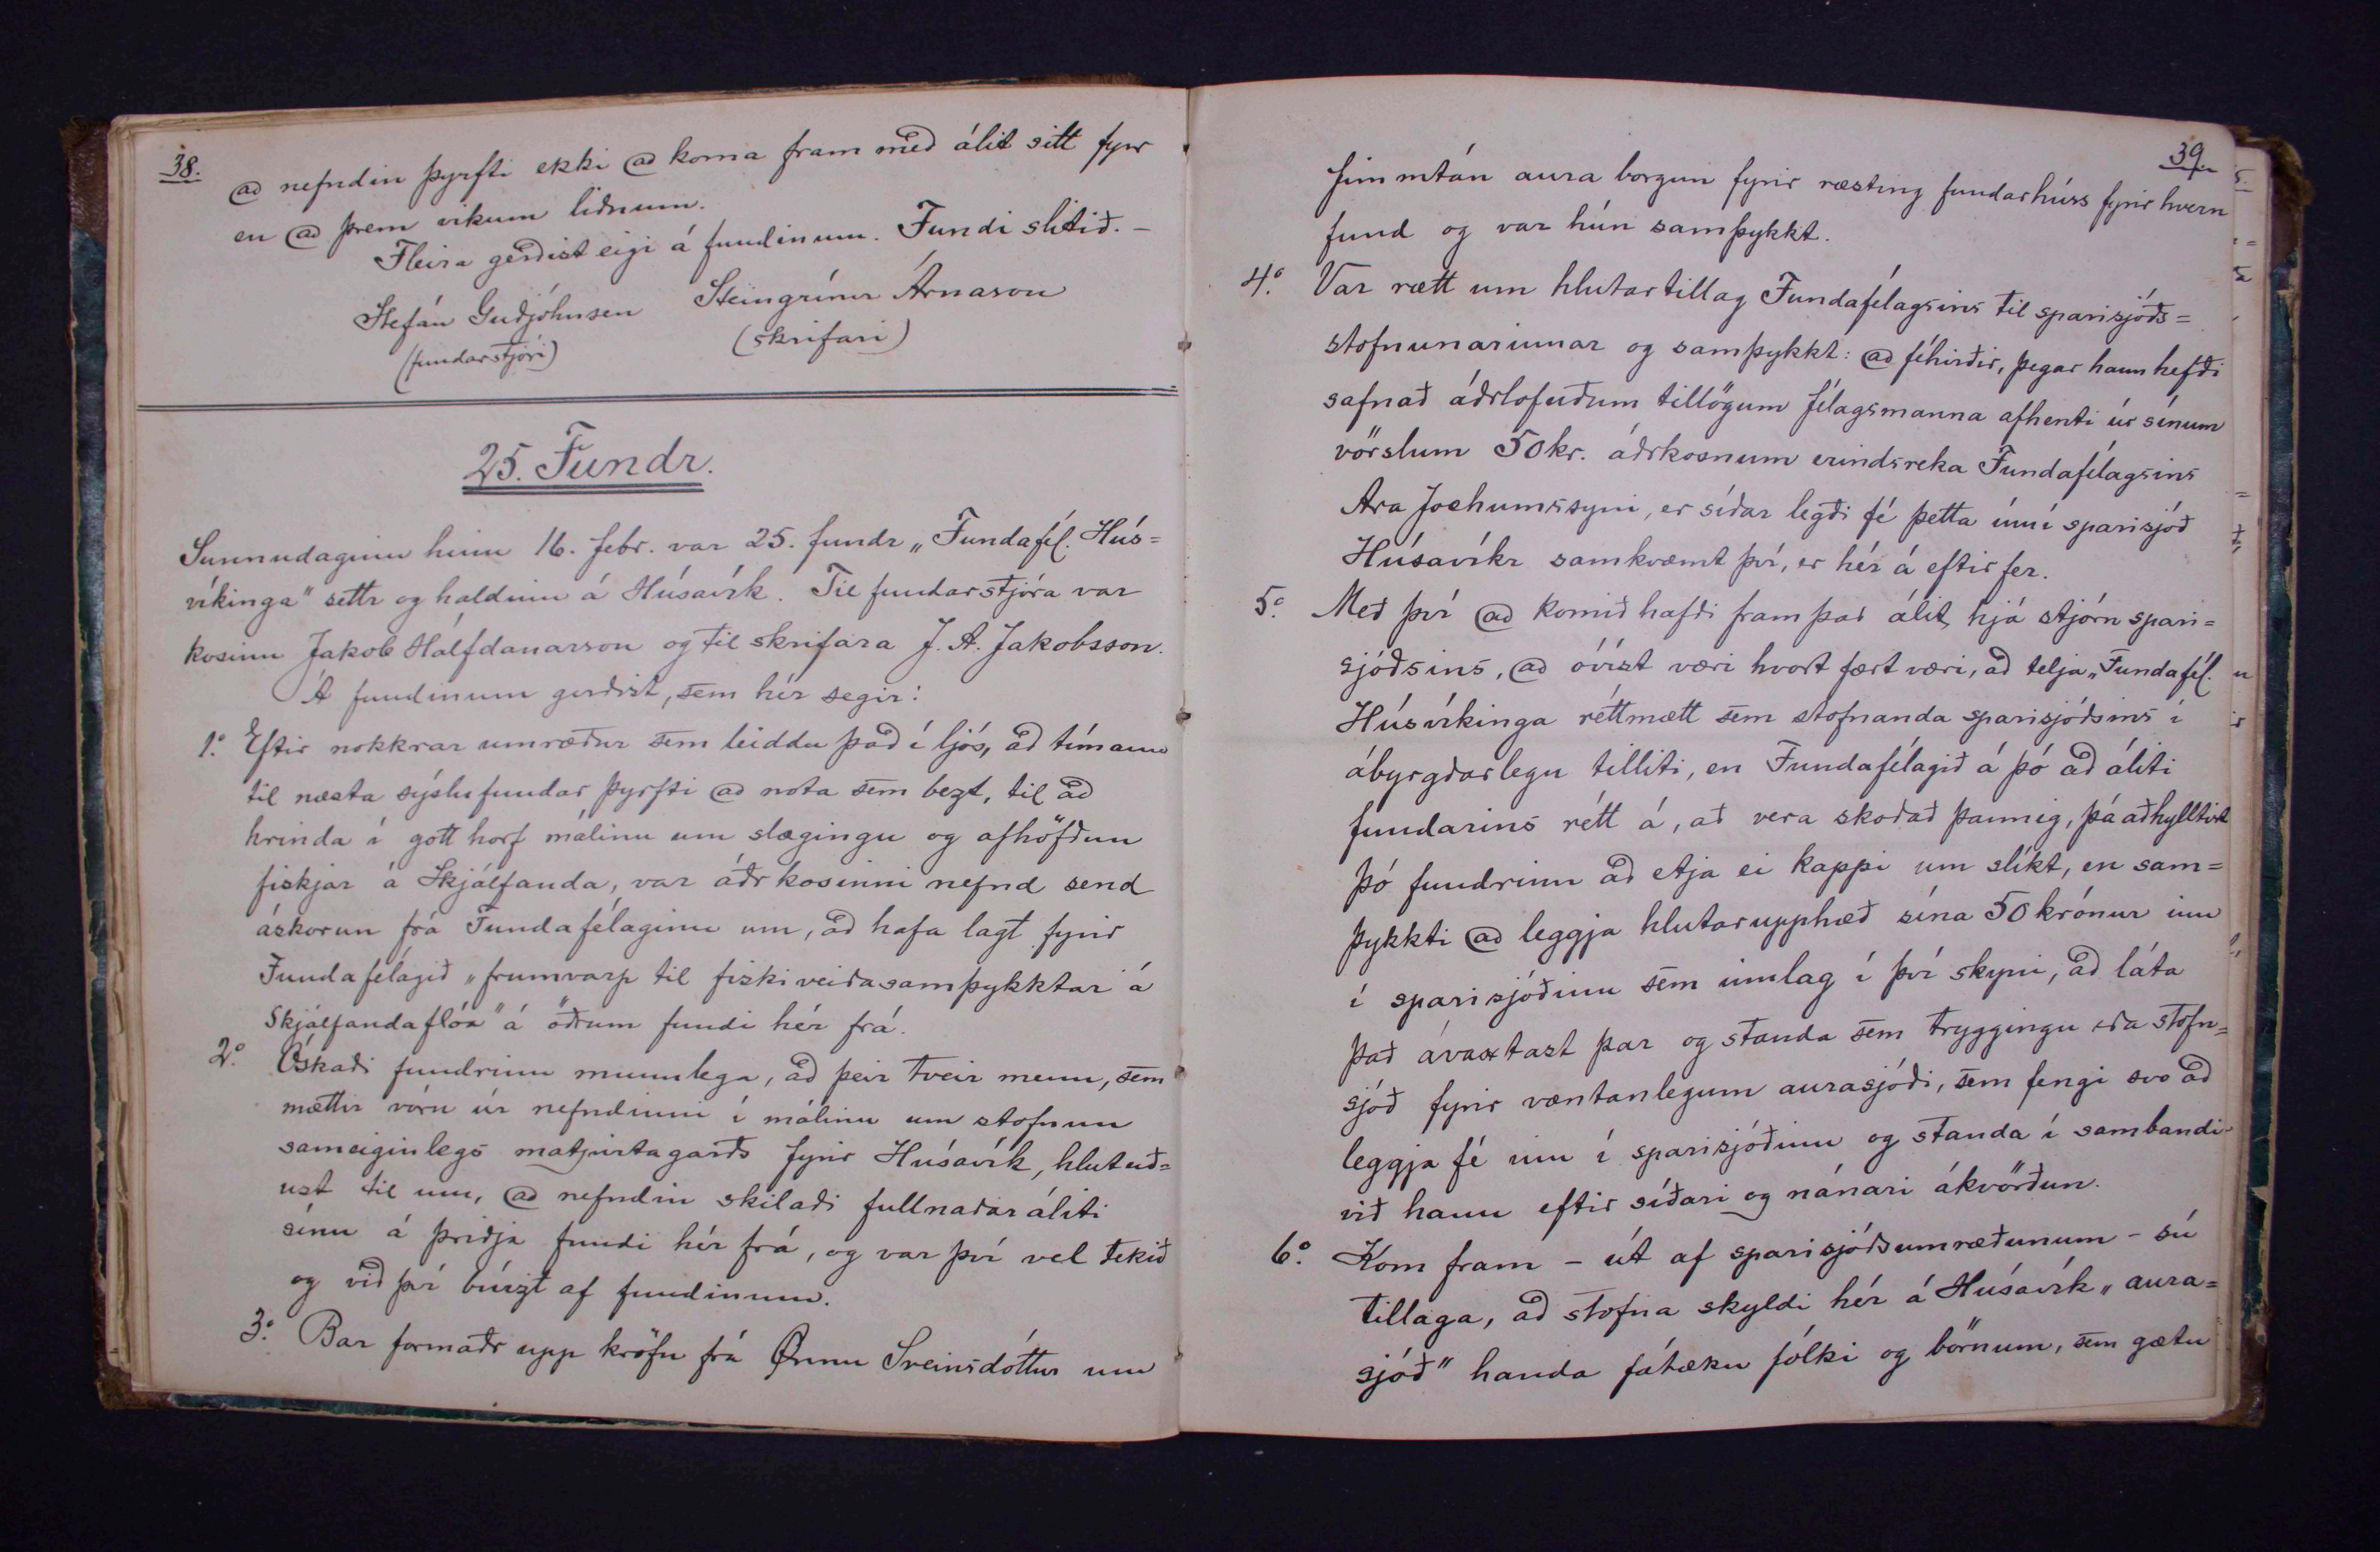 38.
að nefndin þyrfti ekki að koma fram með álit sitt fyr
en að þrem vikum liðnum.
Fleira gerðist eigi á fundinum. Fundi slitið. –
Stefán Guðjóhnsen Steingrímr Árnason
(fundarstjóri) (skrifari)
25. Fundr.
Sunnudaginn hinn 16. febr. var 25. fundr „Fundafél. Hús=
víkinga" settr og haldinn á Húsavík. Til fundarstjóra var
kosinn Jakob Hálfdanarson og til skrifara J. A. Jakobsson.
Á fundinum gerðist, sem hér segir:
1.° Eftir nokkrar umræður sem leiddu það í ljós, að tímann
til næsta sýslufundar þyrfti að nota sem bezt, til að
hrinda í gott horf málinu um slægingu og afhöfðun
fiskjar á Skjálfanda, var áðr kosinni nefnd send
áskorun frá Fundafélaginu um, að hafa lagt fyrir
Fundafélagið „frumvarp til fiskiveiðasamþykktar á
Skjálfandaflóa" á öðrum fundi hér frá.
2.° Óskaði fundrinn munnlega, að þeir tveir menn, sem
mættir vóru úr nefndinni í málinu um stofnun
sameiginlegs matjurtagarðs fyrir Húsavík, hlutuð=
ust til um, að nefndin skilaði fullnaðaráliti
sínu á þriðja fundi hér frá, og var því vel tekið
og við því búizt af fundinum.
3.° Bar formaðr upp kröfu frá Önnu Sveinsdóttur um
39.
fimmtán aura borgun fyrir ræsting fundarhúss fyrir hvern
fund og var hún samþykkt.
4.° Var rætt um hlutartillag Fundafélagsins til sparisjóðs=
stofnunarinnar og samþykkt: að féhirðir, þegar hann hefði
safnað áðrlofuðum tillögum félagsmanna afhenti úr sínum
vörslum 50 kr. áðrkosnum erindsreka Fundafélagsins
Ara Jochumssyni, er síðar legði fé þetta inní sparisjóð
Húsavíkr samkvæmt því, er hér á eftir fer.
5.° Með því að komið hafði fram það álit hjá stjórn spari=
sjóðsins, að óvíst væri hvort fært væri, að telja „Fundafél.
Húsvíkinga réttmætt sem stofnanda sparisjóðsins í
ábyrgðarlegu tilliti, en Fundafélagið á þó að áliti
fundarins rétt á, að vera skoðað þannig, þá aðhylltist
þó fundrinn að etja ei kappi um slíkt, en sam=
þykkti að leggja hlutarupphæð sína 50 krónur inn
í sparisjóðinn sem innlag í því skyni, að láta
það ávaxtast þar og standa sem tryggingu eða stofn=
sjóð fyrir væntanlegum aurasjóði, sem fengi svo að
leggja fé inn í sparisjóðinn og standa í sambandi
við hann eftir síðari og nánari ákvörðun.
6.° Kom fram – út af sparisjóðsumræðunum – sú
tillaga, að stofna skyldi hér á Húsavík „aura=
sjóð" handa fátæku fólki og börnum, sem gætu